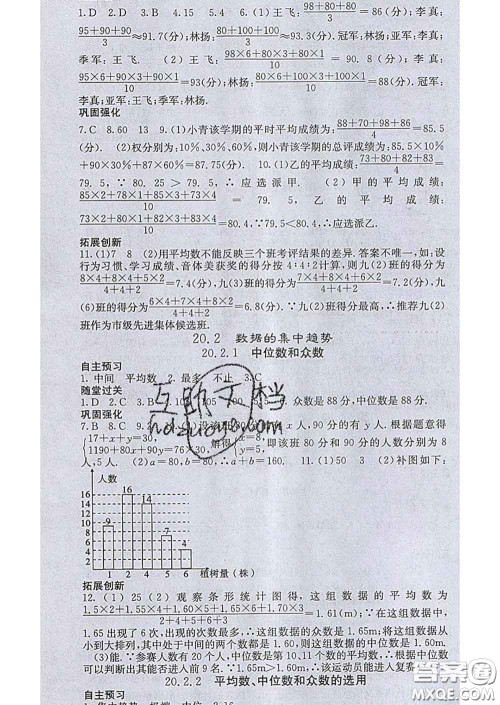 1. D 2. D 3. B 4. 15 5. 4 6. (1) 王飞: (98+80+80)/3=86(分); 李真:
(95+90+90)/3≈91.7(分); 林扬: (80+100+100)/3≈93.3(分). 冠军: 林扬; 亚军: 李真;
季军: 王飞. (2) 王飞: (98×6+80×3+80×1)/10=90.8(分); 李真:
(95×6+90×3+90×1)/10=93(分); 林扬: (80×6+100×3+100×1)/10=88(分). 冠军:
李真; 亚军: 王飞; 季军: 林扬.
巩固强化
7. C 8. 60 13 9. (1)小青该学期的平时平均成绩为: (88+70+98+86)/4=85.5
(分). (2)权分别为: 10%, 30%, 60%, 则小青该学期的总评成绩为: 85.5×10%
+90×30%+87×60%=87.75(分). 10. (1)乙的平均成绩: (73+80+82+83)/4=
79.5, ∵80.25>79.5, ∴应选派甲. (2)甲的平均成绩:
(85×2+78×1+85×3+73×4)/10=79.5, 乙的平均成绩:
(73×2+80×1+82×3+83×4)/10=80.4, ∵79.5<80.4, ∴应选派乙.
拓展创新
11. (1)7 8 (2)用平均数不能反映三个班考评结果的差异. 答案不唯一, 如: 设
行为习惯、学习成绩、音体美获奖的得分按4∶4∶2计算, 则九(2)班的得分为
(8×4+8×4+5×2)/(4+4+2)=7.4(分), 九(4)班的得分为(6×4+8×4+8×2)/(4+4+2)=7.2(分), 九
(6)班的得分为(6×4+7×4+8×2)/(4+4+2)=6.8(分). ∵九(2)班得分最高, ∴推荐九(2)
班作为市级先进集体候选班.
20.2 数据的集中趋势
20.2.1 中位数和众数
自主预习
1. 中间 平均数 2. 最多 不止 3. C
随堂过关
1. D 2. C 3. B 众数是88分, 中位数是88分.
巩固强化
7. B 8. C 9. 人, 90分的有y人. 根据题意得
{17+x+y=30, 1190+80x+90y=76×30, 解得{x=8, y=5, 即该班80分和90分的人数分别为8
人, 5人. (2)a=80, b=80, ∴a+b=160. 11. (1)50 3 (2)补图如下:
人数
16
14
12
10
8
6
4
2
9 16 14 7 4
1 2 4 5 6 植树量(株)
拓展创新
12. (1) 25 (2) 观察条形统计图得, 这组数据的平均数为
(1.5×2+1.55×4+1.60×5+1.65×6+1.70×3)/(2+4+5+6+3)=1.61(m); ∵在这组数据中,
1.65出现了6次, 出现的次数最多, ∴这组数据的众数是1.65m; 将这组数据从
小到大排列, 其中处于中间的两个数都是1.60, 则这组数据的中位数是
1.60. (3)能. ∵参赛人数有20个人, 中位数是第10、11个人的平均数, ∴根据中位数
可以判断出其能否进入前9名. ∵1.65m>1.60m, ∴该运动员能进入复赛.
20.2.2 平均数、中位数和众数的选用
自主预习
互助文档
hdzuoyewom
答案圈
MXQE.COM